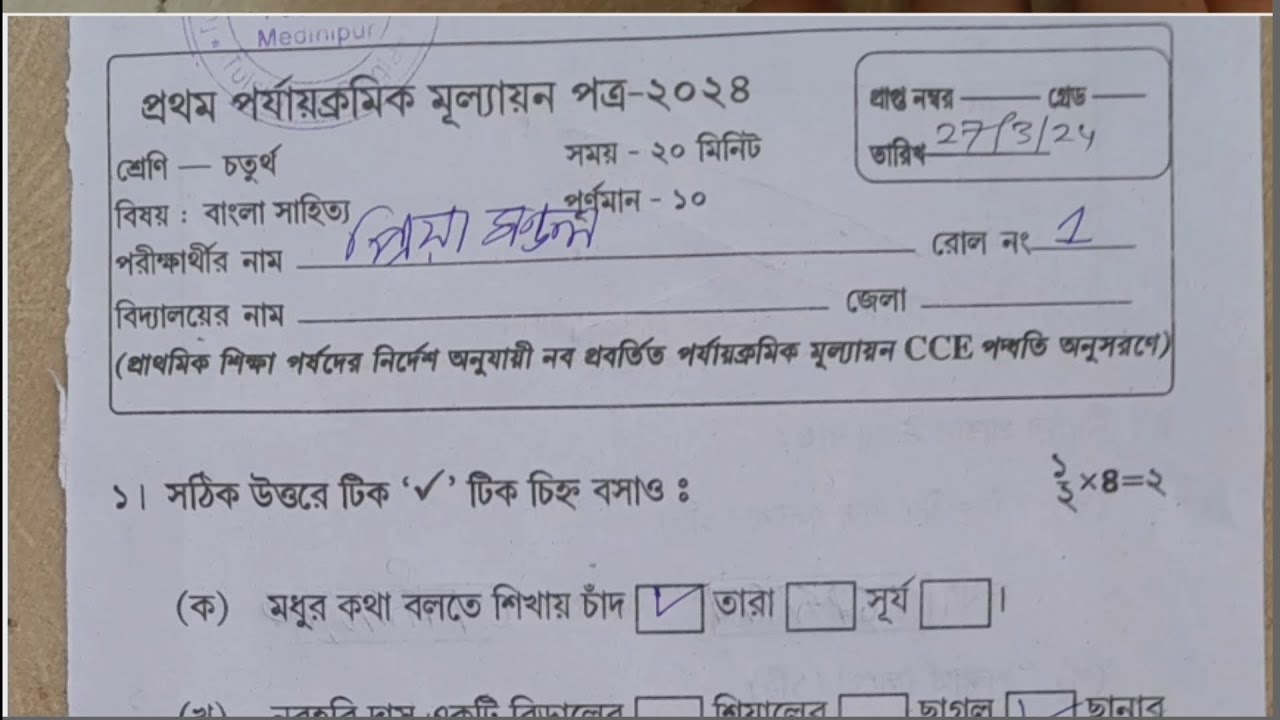 Medinipur
প্রথম পর্যায়ক্রমিক মূল্যায়ন পত্র-২০২৪
প্রাপ্ত নম্বর ——— গ্রেড ———
তারিখ 27/3/24
শ্রেণি — চতুর্থ
সময় - ২০ মিনিট
বিষয় : বাংলা সাহিত্য
পূর্ণমান - ১০
পরীক্ষার্থীর নাম প্রিয়া মণ্ডল রোল নং 1
বিদ্যালয়ের নাম ——— জেলা ———
(প্রাথমিক শিক্ষা পর্ষদের নির্দেশ অনুযায়ী নব প্রবর্তিত পর্যায়ক্রমিক মূল্যায়ন CCE পদ্ধতি অনুসরণে)
১। সঠিক উত্তরে টিক ‘✓’ টিক চিহ্ন বসাও : ১/২ ×৪=২
(ক) মধুর কথা বলতে শিখায় চাঁদ ✓ তারা সূর্য ।
(খ) নরহরি দাস একটি বিড়ালের শিয়ালের ছাগল ছানার